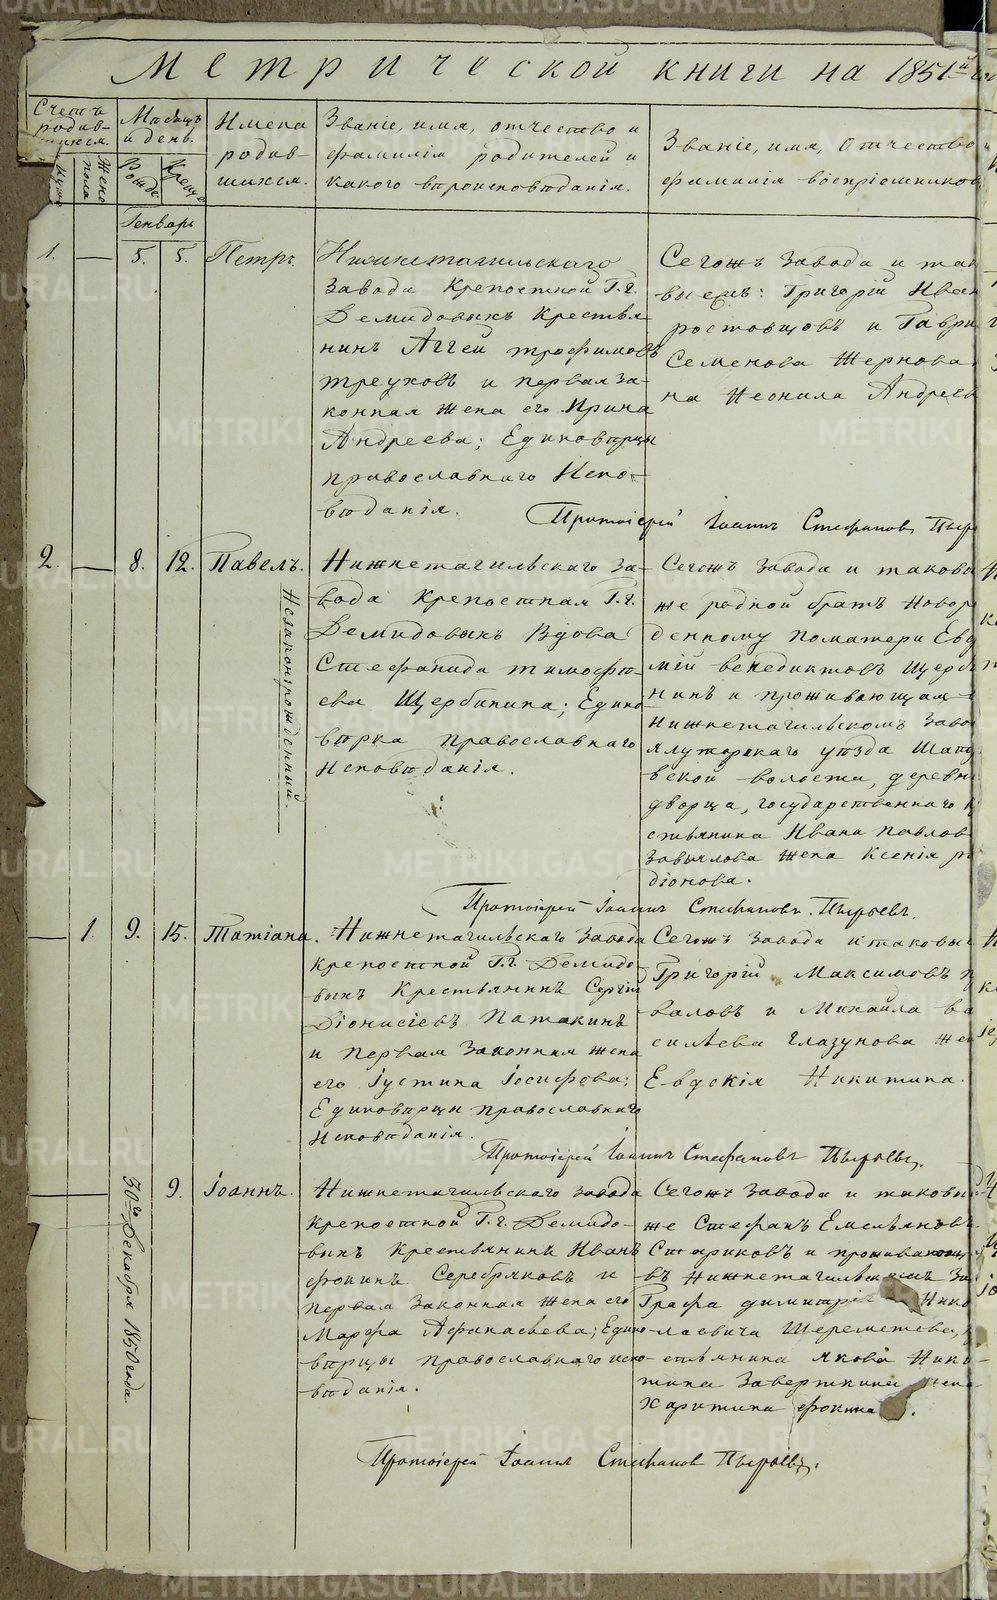 Метрической книги на 1851й
Счетъ родив-шихся.
Муж.
Жено пола
Месяцъ и день.
Рожде.
Креще.
Имена родив-шихся.
Званіе, имя, отчество и
фамилія родителей и
какого вѣроисповѣданія.
Званіе, имя, отчество
фамилія воспріемниковъ
Генварь
1.
5.
5.
Петръ
Нижнетагильскаго
завода крепостной Г.г.
Демидовыхъ крестья
нинъ Аггей трофимовъ
треуховъ и первая за-
конная жена его Ирина
Андреева; Единовѣрцы
православнаго Испо-
вѣданія.
Сегожъ завода и так
выежъ: Григорій Иван
ростовщовъ и Гаври
Семенова Жернова
на Неонила Андреев
Протоіерей Іоаннъ Стефановъ Пыр
2.
8.
12.
Павелъ.
Незаконнрожденный.
Нижнетагильскаго за-
вода крепостная Г.г.
Демидовыхъ Вдова
Стефанида тимофѣ-
ева Щербинина; Едино
вѣрка православнаго
Исповѣданія.
Сегожъ завода и таков
же родной братъ Новор
денному поматери Евд
мій венедиктовъ Щерб
нинъ и проживающая
нижнетагильскомъ заво
ялуторскаго уѣзда Шап
вской волости, деревн
дворца, государственнаго к
стьянина Ивана павлов
завьялова жена Ксенія р
діонова.
Протоіерей Іоаннъ Стефановъ Пырьевъ.
1.
9.
15.
Татіана.
Нижнетагильскаго Завода
крепостной Г.г. Демидо-
выхъ Крестьянинъ Сергій
Діонисіевъ Патакинъ
и первая законная жена
его Іустина Іосифова;
Единовѣрцы православнаго
Исповѣданія.
Сегожъ завода итаковы
Григорій Максимовъ п
валовъ и Михайла ва
сильева глазунова жен
Евдокія Никитина.
Протоіерей Іоаннъ Стефановъ Пырьевъ.
30го Декабря 1850 года
9.
Іоаннъ.
Нижнетагильскаго завода
крепостной Г.г. Демидо-
выхъ крестьянинъ Иванъ
фокинъ Серебряковъ и
первая законная жена его
Марфа Афанасьева; Едино
вѣрцы православнаго испо-
вѣданія.
Сегожъ завода и таковы
же Стефанъ Емельяновъ
Стариковъ и проживающ
въ Нижнетагильскомъ За
Графа димитрі Нико
лаевича Шереметева,
стьянина якова Ники-
тина Заверткина жена
Харитина фокина.
Протоіерей Іоаннъ Стефановъ Пырьевъ.
METRIKI.GASO-URAL.RU